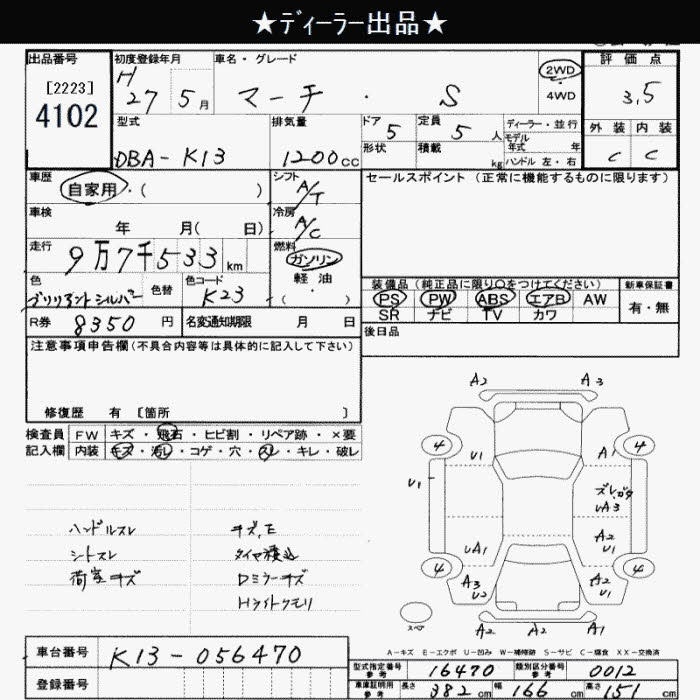 ★ディーラー出品★
出品番号 初度登録年月 車名・グレード 評価点
[2223] H 27 5月 マーチ・S 2WD 4WD 3.5
4102
外装 内装
型式 排気量 ドア 5 定員 5人 ディーラー・並行
モデル年式 年
DBA-K13 1200cc 形状 積載 kg ハンドル左・右 C C
車歴 シフト セールスポイント(正常に機能するものに限ります)
自家用・( ) A/T
車検 冷房
年 月( 日) A/C
走行 燃料
9万7千533km ガソリン
軽油
色 色替 色コード ・( )
ブリリアントシルバー K23
装備品(純正品に限り○をつけてください) 新車保証書
PS PW ABS エアB AW 有・無
SR ナビ TV カワ
R券 8350円 名変通知期限 月 日
後日品
注意事項申告欄(不具合内容等は具体的に記入して下さい)
修復歴 有 [箇所 ]
検査員 FW キズ・飛石・ヒビ割・リペア跡・×要
記入欄 内装 キズ・汚レ・コゲ・穴・スレ・キレ・破レ
ハンドルスレ
シートスレ
荷室キズ
キズ、E
タイヤ積込
Dミラーキズ
Hライトクモリ
A2 A3
4 4
U1 A1
U1
ズレ、ガタ
UA3
UA1 A2 U1
4 4
A3 U2 A2 U1
スペア
A2 A2 A1
A-キズ E-エクボ U-凹み W-補修跡 S-サビ C-腐食 XX-交換済
車台番号 K13-056470
登録番号
型式指定番号 参考 16470 類別区分番号 参考 0012
車庫証明用 参考 長さ 382cm 幅 166cm 高さ 151cm